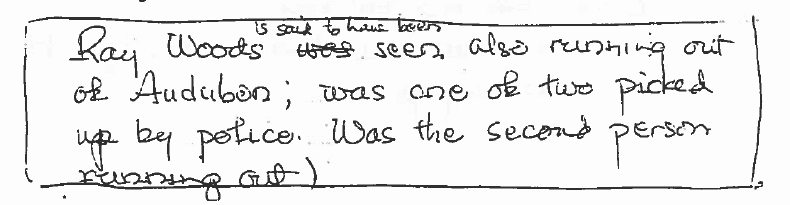 is said to have been
Ray Woods was seen also running out
of Audubon; was one of two picked
up by police. Was the second person
running out)